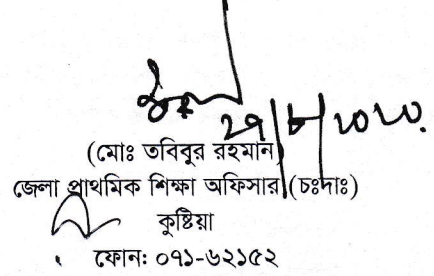 ২৭/৮/২০২০
(মোঃ তবিবুর রহমান)
জেলা প্রাথমিক শিক্ষা অফিসার (চঃদাঃ)
কুষ্টিয়া
ফোন: ০৭১-৬২১৫২